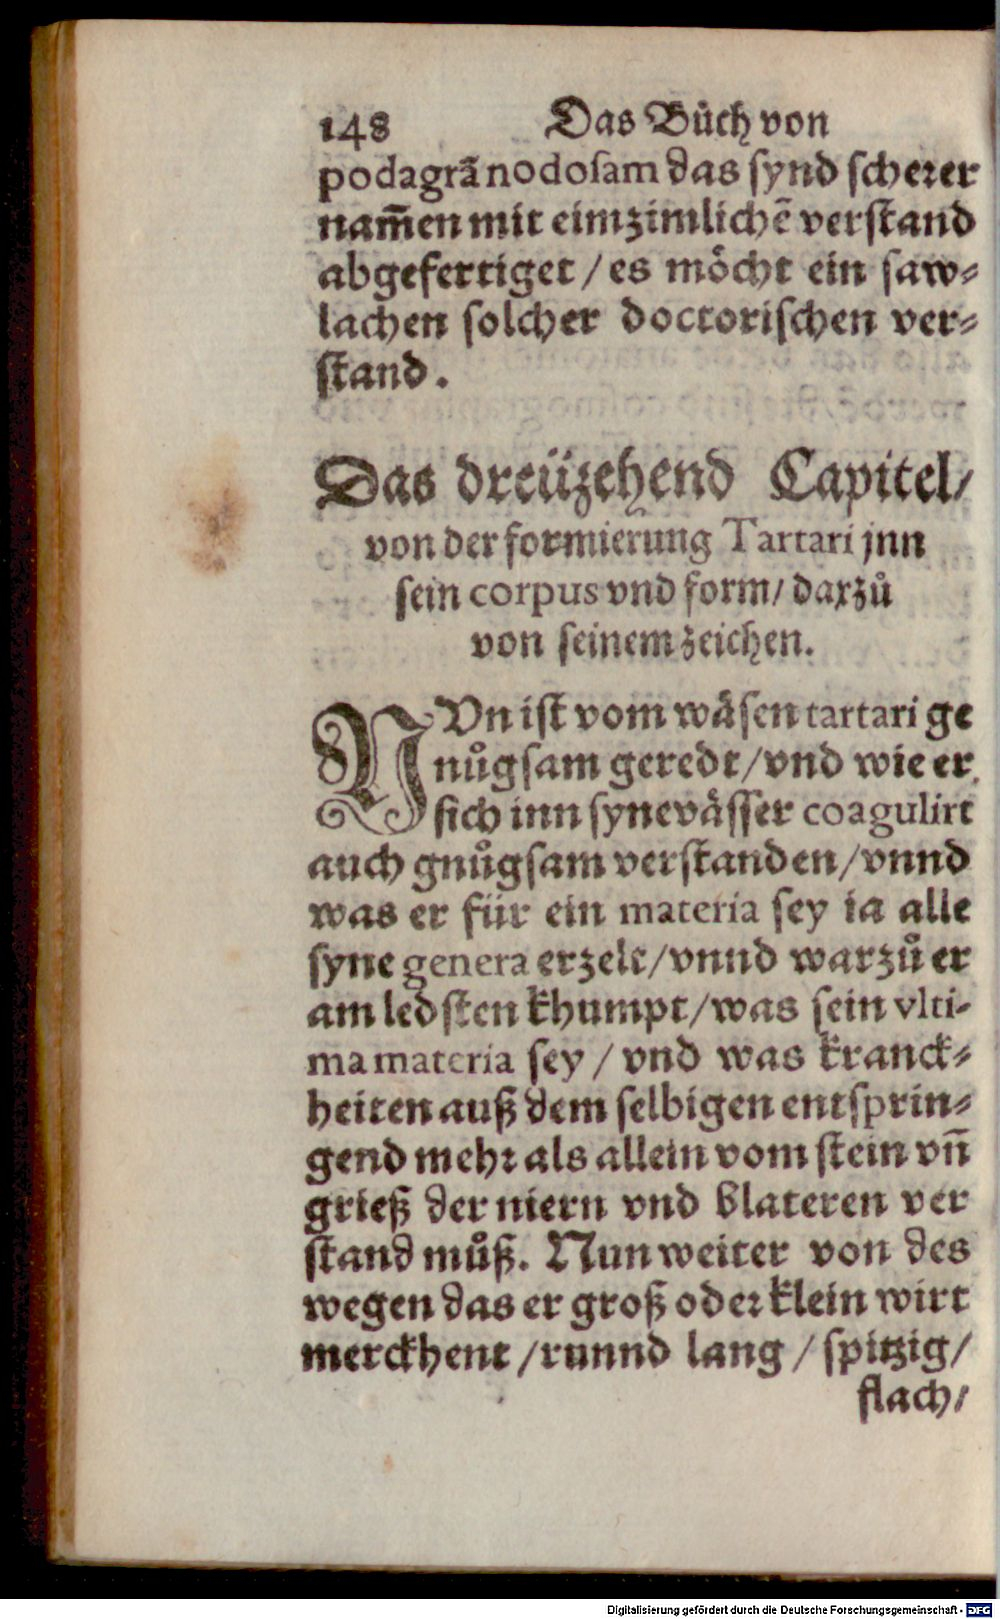 148 Das Bůch von
podagrā nodosam das synd scherer
nam̄en mit eim zimlichē verstand
abgefertiget / es möcht ein saw⸗
lachen solcher doctorischen ver⸗
stand.
Das dreüzehend Capitel/
von der formierung Tartari jnn
sein corpus vnd form/ darzů
von seinem zeichen.
NVn ist vom wäsen tartari ge
nůgsam geredt/vnd wie er
sich inn syne vässer coagulirt
auch gnůgsam verstanden/vnnd
was er für ein materia sey ia alle
syne genera erzelt/vnnd warzů er
am ledsten khumpt/was sein vlti-
ma materia sey / vnd was kranck⸗
heiten auß dem selbigen entsprin⸗
gend mehr als allein vom stein vn̄
grieß der niern vnd blateren ver
stand můß. Nun weiter von des
wegen das er groß oder klein wirt
merckhent /runnd lang / spitzig/
flach/
Digitalisierung gefördert durch die Deutsche Forschungsgemeinschaft - DFG